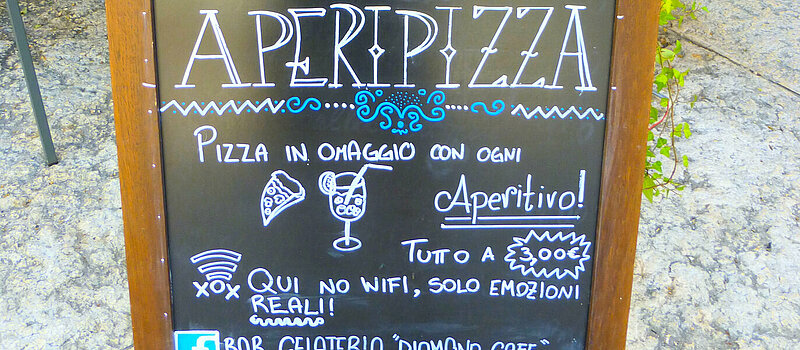 APERIPIZZA
PIZZA IN OMAGGIO CON OGNI
Aperitivo!
TUTTO A 3,00€
XOX QUI NO WIFI, SOLO EMOZIONI
REALI!
f BAR GELATERIA "DIOMANO CAFE"